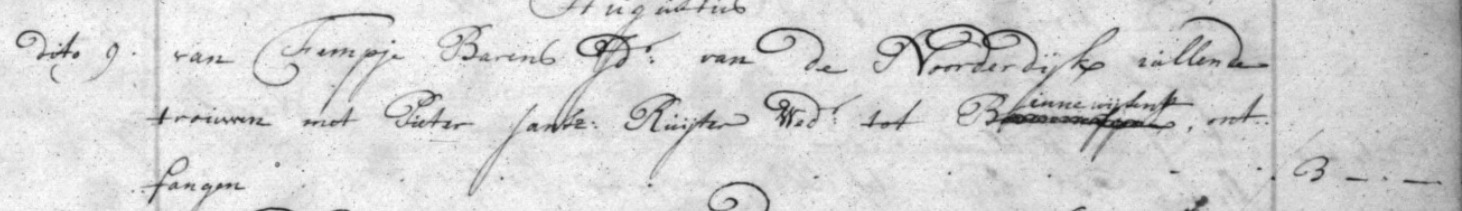 Augustus
dito 9. van Fempje Barens Jd: van de Noorderdijk zullende
trouwen met Pieter Jansz: Ruijter Wed:r tot Binnewijsent, ont
fangen 3 — . —